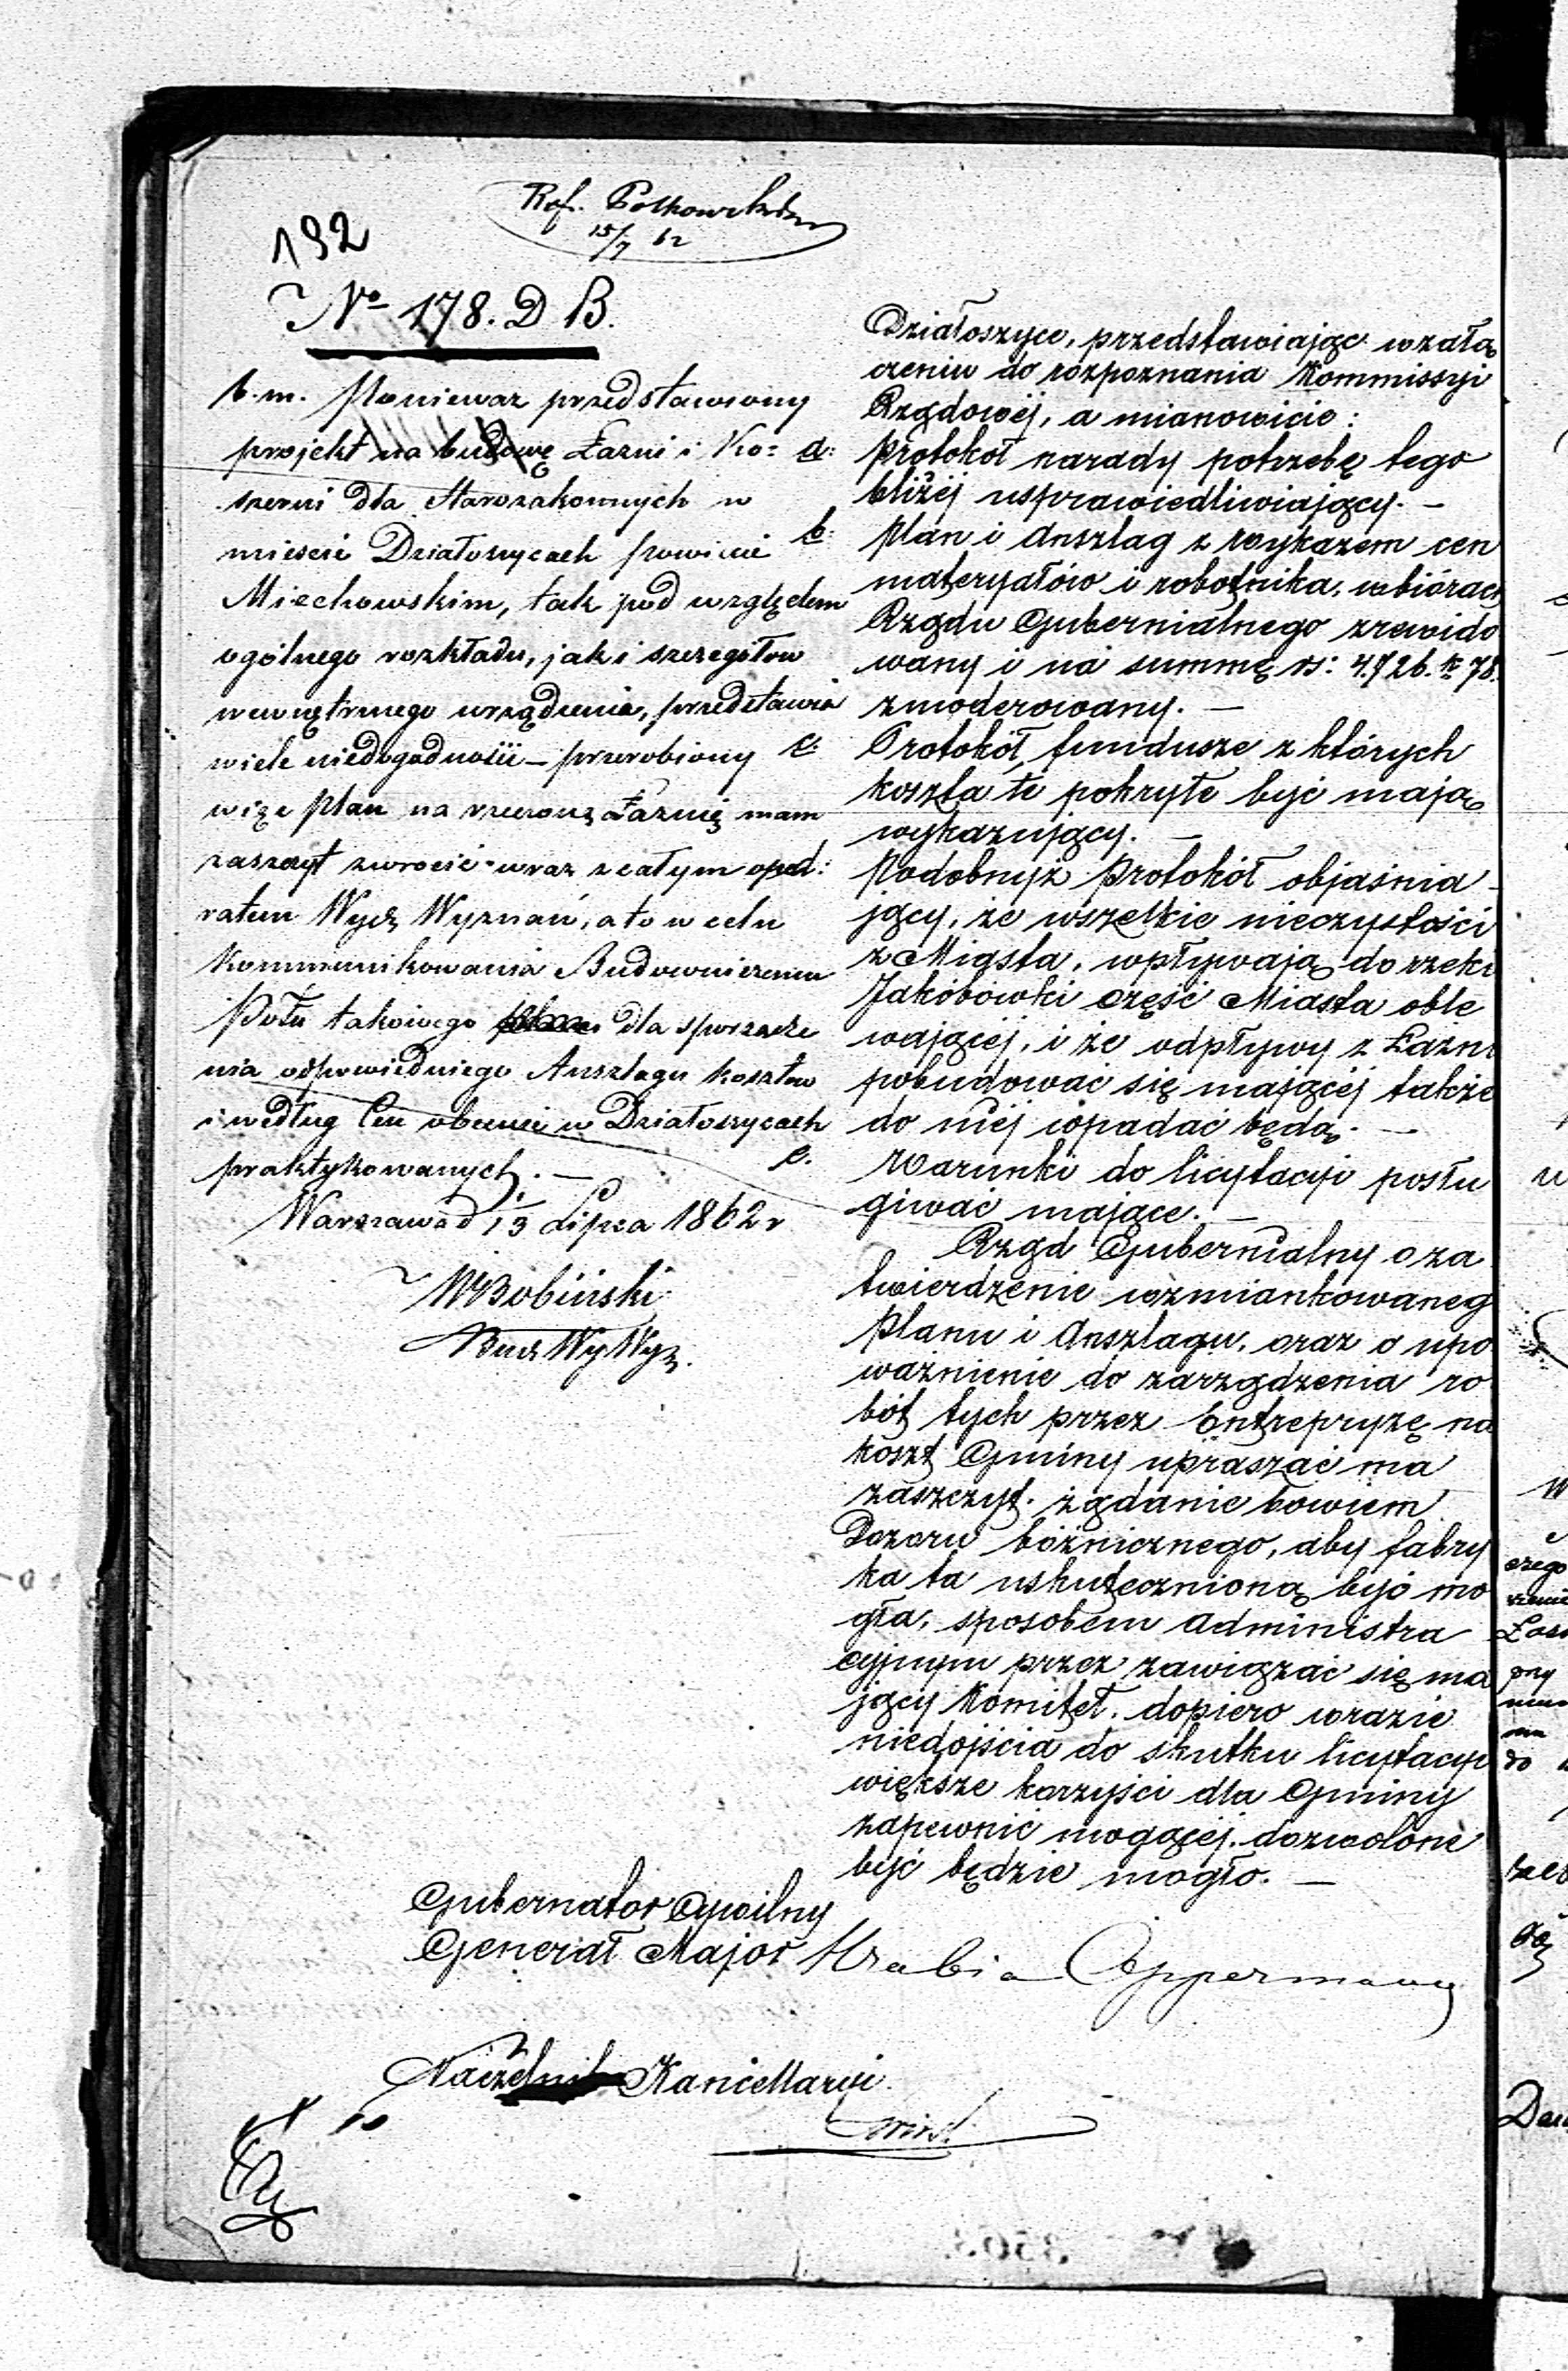 Ref. Polkowski
15/7 62
192
No 178. D B.
b. m. Ponieważ przedstawiony
projekt na budowę Łazni i Ko-
szerni dla Starozakonnych w
mieście Działoszycach powiecie
Miechowskim, tak pod względem
ogólnego rozkładu, jak i szczegółów
wewnętrznego urządzenia, przedstawia
wiele niedogodności – przerobiony
więc plan na rzeczoną Łaznię mam
zaszczyt zwrócić wraz z całym opa-
ratem Wydz Wyznań, a to w celu
kommunikowania Budowniczemu
Pottu takowego dla sporządze
nia odpowiedniego Anszlagu kosztów
i według Cen obecnie w Działoszycach
praktykowanych. —
Warszawa d 1/13 Lipca 1862 r
WBobiński
Bud Wy Wyz.
Działoszyce, przedstawiając w załą
czeniu do rozpoznania Kommissyi
Rządowéj, a mianowicie:
a: Protokół narady potrzebę tego
bliżéj usprawiedliwiający. —
b: Plan i Anszlag z wykazem cen
materyałów i robotnika, w biórach
Rządu Gubernialnego zrewido
wany i na summę rs: 4.726. k 78.
zmoderowany. —
c: Protokół, fundusze z których
koszta te pokryte być mają
wykazujący. —
d: Podobnyż Protokół objaśnia
jący, że wszelkie nieczystości
z Miasta, wpływają do rzeki
Jakóbówki część Miasta oble
wającéj, i że odpływy z Łazni
pobudować się mającéj także
do niéj wpadać będą. —
e. Warunki do licytacyi posłu
giwać mające. —
Rząd Gubernialny o za
twierdzenie wzmiankowaneg
Planu i Anszlagu, oraz o upo
ważnienie do zarządzenia ro
bót tych przez Entrepryzę na
koszt Gminy upraszać ma
zaszczyt. żądanie bowiem
Dozoru bóżnicznego, aby fabry
ka ta uskutecznioną być mo
gła, sposobem administra
cyjnym przez zawiązać się ma
jący Komitet, dopiero w razie
niedojścia do skutku licytacyi
większe korzyści dla Gminy
zapewnić mogącéj, dozwolone
być będzie mogło. —
Gubernator Cywilny
Generał Major Hrabia Oppermann
Naczelnik Kancellaryi